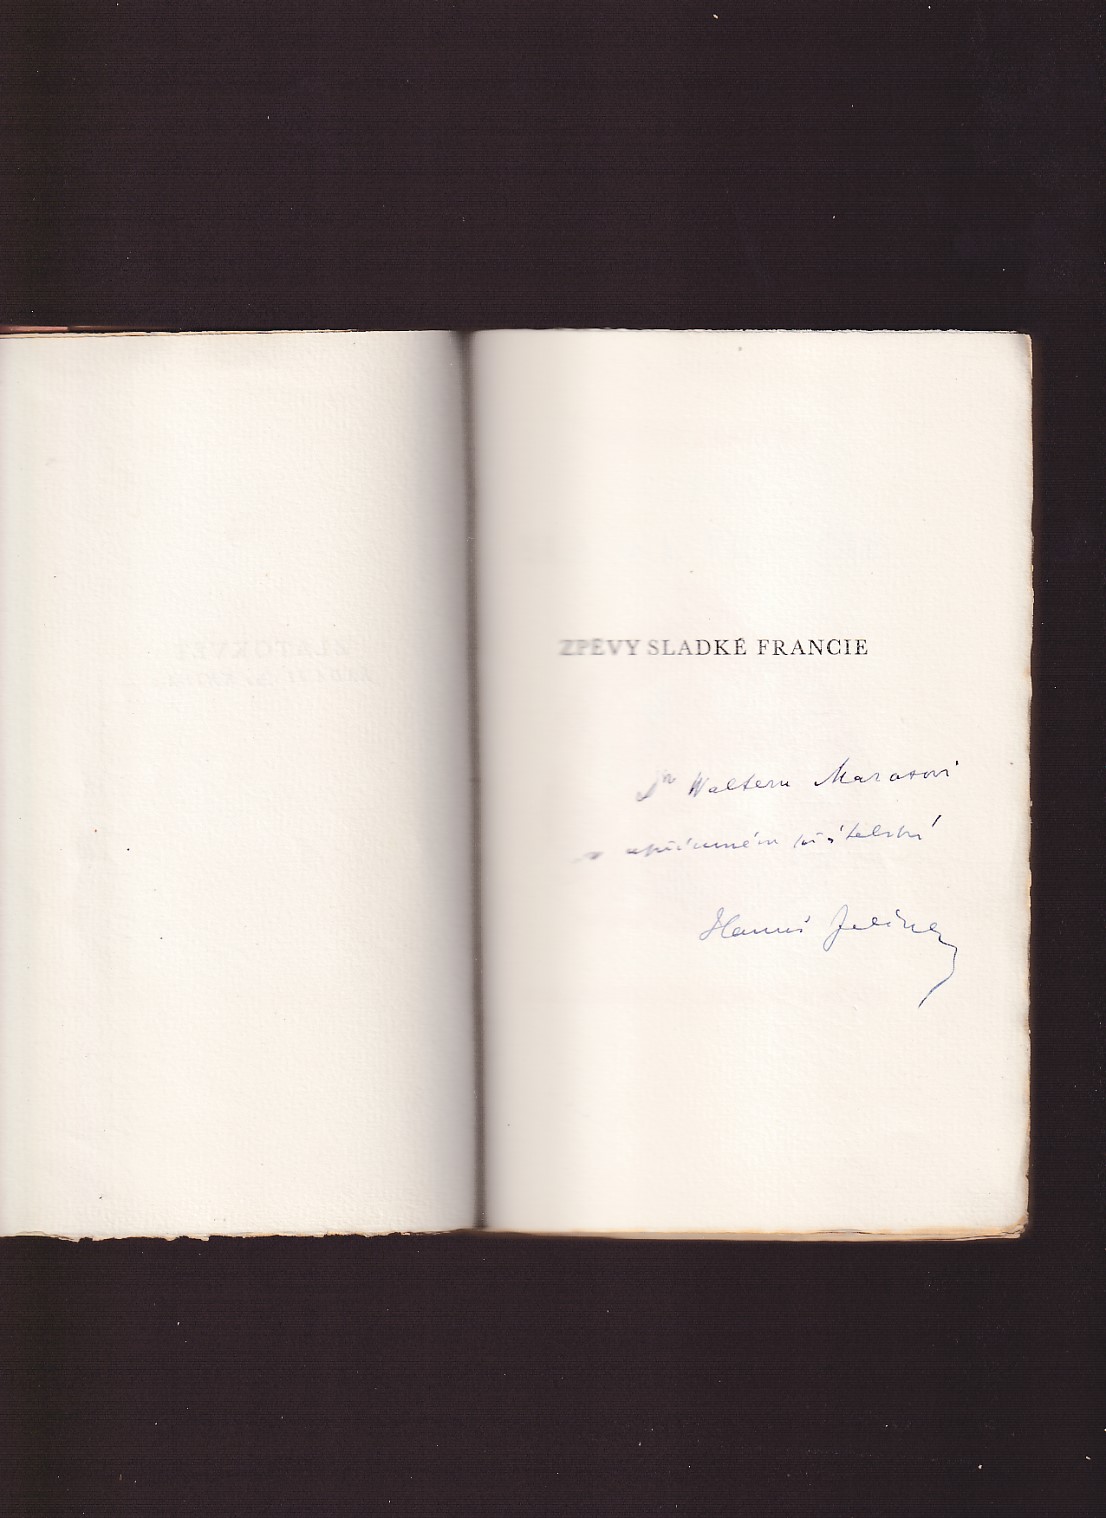 ZPĚVY SLADKÉ FRANCIE
Dr Walteru Marasovi
v upřímném přátelství
Hanuš Jelínek